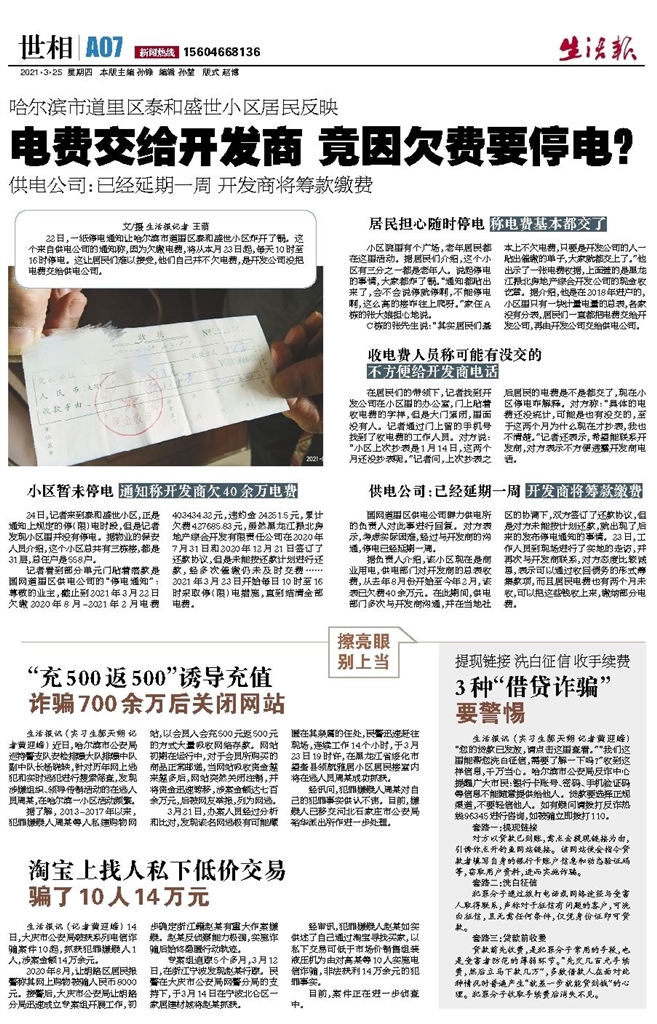 世相 A07 新闻热线 15604668136
生活報
2021·3·25 星期四 本版主编 孙锋 编辑 孙堃 版式 赵博
哈尔滨市道里区泰和盛世小区居民反映
电费交给开发商 竟因欠费要停电？
供电公司：已经延期一周 开发商将筹款缴费
文/摄 生活报记者 王萌
22日，一纸停电通知让哈尔滨市道里区泰和盛世小区炸开了锅。这
个来自供电公司的通知称，因为欠缴电费，将从本月23日起，每天10时至
16时停电。这让居民们难以接受，他们自己并不欠电费，是开发公司没把
电费交给供电公司。
居民担心随时停电 称电费基本都交了
小区院里有个广场，老年居民都
在这里活动。据居民们介绍，这个小
区有三分之一都是老年人。说起停电
的事情，大家都炸了锅。“通知都贴出
来了，会不会说停就停啊，不能停电
啊，这么高的楼咋往上爬呀。”家住A
栋的张大娘担心地说。
C栋的张先生说：“其实居民们基
本上不欠电费，只要是开发公司的人一
贴出催缴的单子，大家就都交上了。”他
出示了一张电费收据，上面盖的是黑龙
江振北房地产综合开发公司的现金收
讫章。据介绍，他是在2018年进户的，
小区里只有一块计量电量的总表，各家
没有分表，居民们一直都把电费交给开
发公司，再由开发公司交给供电公司。
收电费人员称可能有没交的
不方便给开发商电话
在居民们的带领下，记者找到开
发公司在小区里的办公室，门上贴着
收电费的字样，但是大门紧闭，里面
没有人。记者通过门上留的手机号
找到了收电费的工作人员。对方说：
“小区上次抄表是1月14日，这两个
月还没抄表呢。”记者问，上次抄表之
后居民的电费是不是都交了，现在小
区停电咋解释。对方称：“具体的电
费还没统计，可能是也有没交的，至
于这两个月为什么现在才抄表，我也
不清楚。”记者还表示，希望能联系开
发商，对方表示不方便透露开发商电
话。
小区暂未停电 通知称开发商欠40余万电费
24日，记者来到泰和盛世小区，正是
通知上规定的停（限）电时段，但是记者
发现小区里并没有停电。据物业的保安
人员介绍，这个小区总共有三栋楼，都是
31层，总住户是558户。
记者看到部分单元门贴着落款是
国网道里区供电公司的“停电通知”：
尊敬的业主，截止到2021年3月22日
欠缴2020年8月-2021年2月电费
403434.32元，违约金24251.5元，累计
欠费427685.83元，虽然黑龙江振北房
地产综合开发有限责任公司在2020年
7月31日和2020年12月21日签订了
还款协议，但是未能按还款计划进行还
款，经多次催缴仍未及时交费……
2021年3月23日开始每日10时至16
时采取停（限）电措施，直到结清全部
电费。
供电公司：已经延期一周 开发商将筹款缴费
国网道里区供电公司群力供电所
的负责人对此事进行回复。对方表
示，考虑实际困难，经过与开发商的沟
通，停电已经延期一周。
据负责人介绍，该小区现在是商
业用电，供电部门对开发商的总表收
费，从去年8月份开始至今年2月，该
表已欠费40余万元。在此期间，供电
部门多次与开发商沟通，并在当地社
区的协调下，双方签订了还款协议，但
是对方未能按计划还款，就出现了后
来的发布停电通知的事情。23日，工
作人员到现场进行了实地的走访，并
再次与开发商联系，对方态度比较诚
恳，表示可以通过收回债务的形式筹
集款项，而且居民电费也有两个月未
收，可以把这些钱收上来，缴纳部分电
费。
擦亮眼
别上当
“充500返500”诱导充值
诈骗700余万后关闭网站
生活报讯（实习生郝天翔 记
者黄迎峰）近日，哈尔滨市公安局
巡特警支队安检排爆大队排爆中队
副中队长杨晓峡，针对历年网上逃
犯和实时逃犯进行搜索筛查，发现
涉嫌组织、领导传销活动的在逃人
员周某，在哈尔滨一小区活动频繁。
据了解，2013-2017年以来，
犯罪嫌疑人周某等人私建购物网
站，以会员入会充500元返500元
的方式大量吸收网络存款。网站
初期在运行中，对于会员所购买的
商品正常邮递，当网站吸收资金越
来越多后，网站突然关闭注销，并
将资金迅速转移，涉案金额达七百
余万元，后被网友举报，列为网逃。
3月21日，办案人员经过分析
和比对，发现该名网逃极有可能藏
匿在其亲属的住处，民警迅速赶往
现场，连续工作14个小时，于3月
23日19时许，在黑龙江省绥化市
望奎县领航雅居小区居民楼室内
将在逃人员周某成功抓获。
经讯问，犯罪嫌疑人周某对自
己的犯罪事实供认不讳。目前，嫌
疑人已移交河北石家庄市公安局
裕华派出所作进一步处理。
淘宝上找人私下低价交易
骗了10人14万元
生活报讯（记者黄迎峰）14
日，大庆市公安局破获系列电信诈
骗案件10起，抓获犯罪嫌疑人1
人，涉案金额14万余元。
2020年8月，让胡路区居民报
警称其网上购物被骗人民币8000
元。接警后，大庆市公安局让胡路
分局迅速成立专案组开展工作，初
步确定浙江籍赵某有重大作案嫌
疑。赵某反侦察能力极强，实施诈
骗后始终隐匿行动轨迹。
专案组追踪5个多月，3月12
日，在浙江宁波发现赵某行踪。民
警在大庆市公安局网警分局的支
持下，于3月14日在宁波北仑区一
家居建材城将赵某抓获。
经审讯，犯罪嫌疑人赵某如实
供述了自己通过淘宝寻找买家，以
私下交易可低于市场价销售组装
液压机为由对高某等10人实施电
信诈骗，非法获利14万余元的犯
罪事实。
目前，案件正在进一步侦查
中。
提现链接 洗白征信 收手续费
3种“借贷诈骗”
要警惕
生活报讯（实习生郝天翔 记者黄迎峰）
“您的贷款已发放，请点击这里查看。”“我们这
里能帮您洗白征信，需要了解一下吗？”收到这
样信息，千万当心。哈尔滨市公安局反诈中心
提醒广大市民：银行卡账号、密码、手机验证码
等信息不能随意提供给他人。贷款要选择正规
渠道，不要轻信他人。如有疑问请拨打反诈热
线96345进行咨询，如被骗立即拨打110。
套路一：提现链接
对方以贷款已到账，需点击提现链接为由，
引诱诈点开钓鱼网站链接。该网站便会指令贷
款者填写自身的银行卡账户信息和动态验证码
等，窃取用户资料，进而实施诈骗。
套路二：洗白征信
犯罪分子通过拨打电话或网络途径与受害
人取得联系，声称对于征信有问题的客户，可洗
白征信，且无需任何条件，仅凭身份证即可贷
款。
套路三：贷款前收费
贷款前先收费，是犯罪分子常用的手段，也
是受害者防范的薄弱环节。“先交几百元手续
费，然后立马下款几万”，多数借款人在面对此
种情况时普遍产生“就差一步就能贷到钱”的心
理。犯罪分子收取手续费后消失不见。